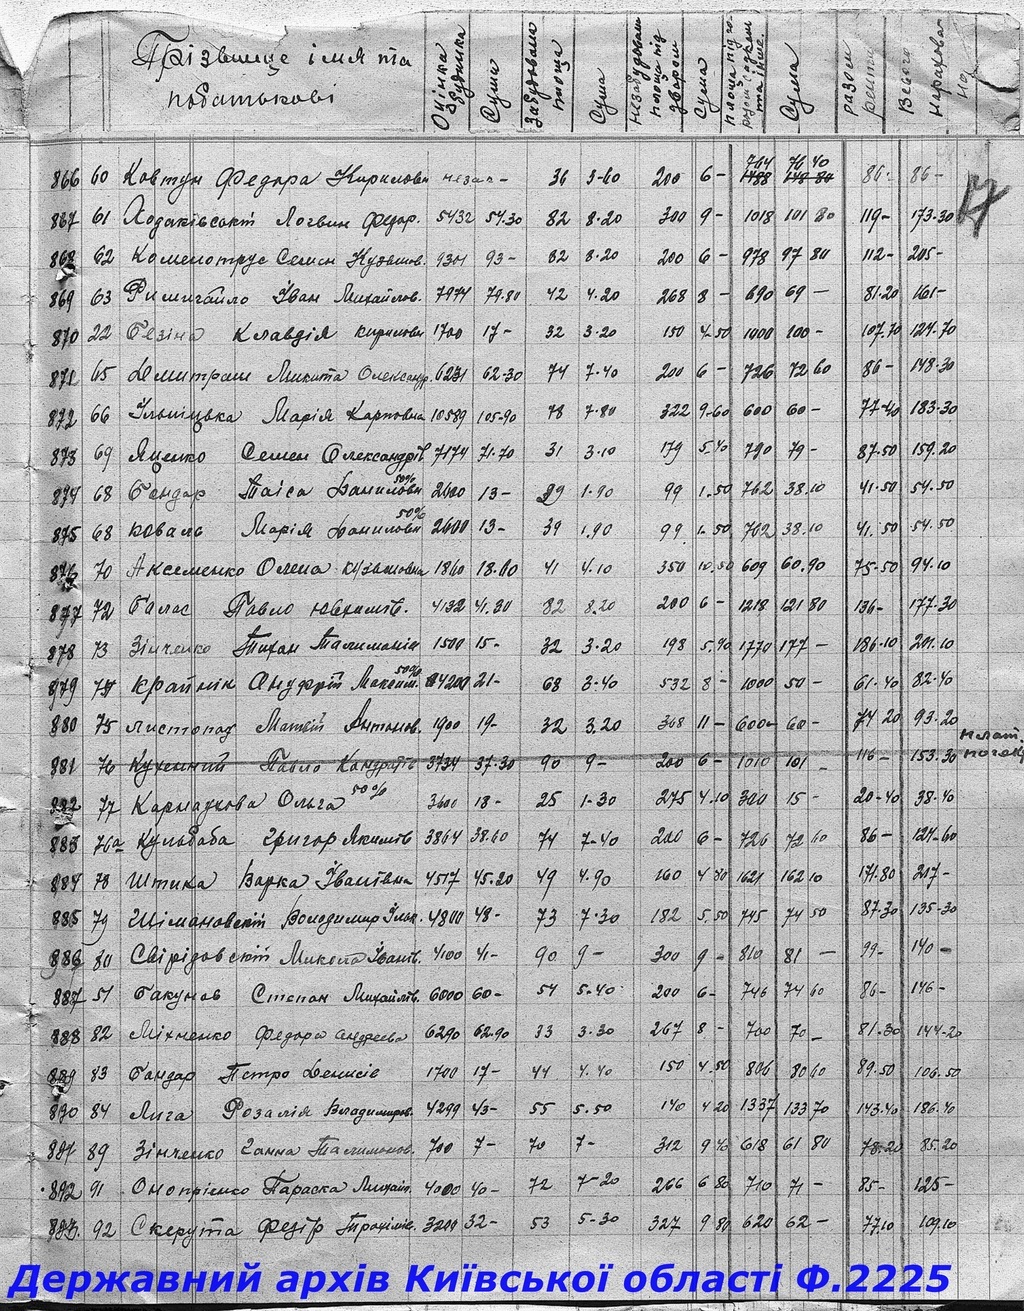 Прізвище імя та
податькові
Оцінка будинка
Сума
Забудована площа
Сума
незабудован площа під двором
Сума
площа під
Сума
разом рента
Всього нарахова но
17
866 60 Ковтун Федора Кирилови 36 3-60 200 6- 764 76 40 86- 86-
867 61 Ходаківський Логвин Федор. 5432 54.30 82 8-20 300 9- 1018 101 80 119- 173-30
868 62 Каменотрус Семен Кузьмов. 9301 93- 82 8-20 200 6- 978 97 80 112- 205-
869 63 Римигайло Іван Михайлов. 7974 79.80 42 4.20 268 8- 690 69- 81.20 161-
870 22 Безіна Клавдія Кирилови 1700 17- 32 3-20 150 4.50 1000 100- 107.70 124.70
871 65 Дмитраш Микита Олександр. 6231 62-30 74 7-40 200 6- 726 72 60 86- 148-30
872 66 Ільніцька Марія Карповна 10589 105-90 78 7-80 322 9-60 600 60- 77-40 183-30
873 69 Яценко Семен Олександрів 7174 71-70 31 3-10 179 5.40 790 79- 87.50 159.20
874 68 Бондар Таіса Данилови 50% 2600 13- 39 1.90 99 1.50 762 38.10 41.50 54.50
875 68 Коваль Марія Данилови 50% 2600 13- 39 1.90 99 1-50 762 38.10 41.50 54.50
876 70 Аксеменко Олена Кузьмовна 1860 18.60 41 4.10 350 10.50 609 60.90 75-50 94.10
877 72 Галас Павло Юхимів. 4132 41.30 82 8.20 200 6- 1218 121 80 136- 177-30
878 73 Зінченко Тихон Талимонів 1500 15- 32 3-20 198 5.90 1770 177- 186.10 201.10
879 74 Крайнік Ануфрій Максим. 50% 4200 21- 68 3-40 532 8- 1000 50- 61-40 82-40
880 75 Листопад Матвій Антонов. 1900 19- 32 3.20 368 11- 600 60- 74 20 93.20
881 76 Кухенний Павло Кандратів 3734 37.30 90 9- 200 6- 1010 101- 116- 153.30
882 77 Кармазкова Ольга 50% 3600 18- 25 1-30 275 4.10 300 15- 20-40 38-40
883 76а Кульбаба Григор Якимів 3864 38.60 74 7-40 200 6- 726 72 60 86- 124-60
884 78 Штика Варка Іванівна 4517 45.20 49 4.90 160 4 80 1621 162 10 171.80 217-
885 79 Шімановскій Володимир Ільк. 4800 48- 73 7.30 182 5.50 745 74 50 87.30 135-30
886 80 Свірідовскій Микола Іванів. 4100 41- 90 9- 300 9- 810 81- 99- 140-
887 51 Бакунов Степан Михайлів. 6000 60- 54 5.40 200 6- 746 74 60 86- 146-
888 82 Міхненко Федора Андреєва 6290 62.90 33 3-30 267 8- 700 70- 81.30 144-20
889 83 Гандар Петро Денисів 1700 17- 44 4.40 150 4.50 806 80 60 89.50 106.50
890 84 Лига Розалія Владимиров. 4299 43- 55 5.50 140 4 20 1337 133 70 143.40 186.40
891 89 Зінченко Ганна Талимонов. 700 7- 70 7- 312 9 40 618 61 80 78.20 85.20
892 91 Онопрієнко Параска Михайл. 4000 40- 72 7-20 266 6 80 710 71- 85- 125-
893. 92 Скерута Федір Трохимів. 3200 32- 53 5-30 327 9 80 620 62- 77.10 109.10
Державний архів Київської області Ф.2225